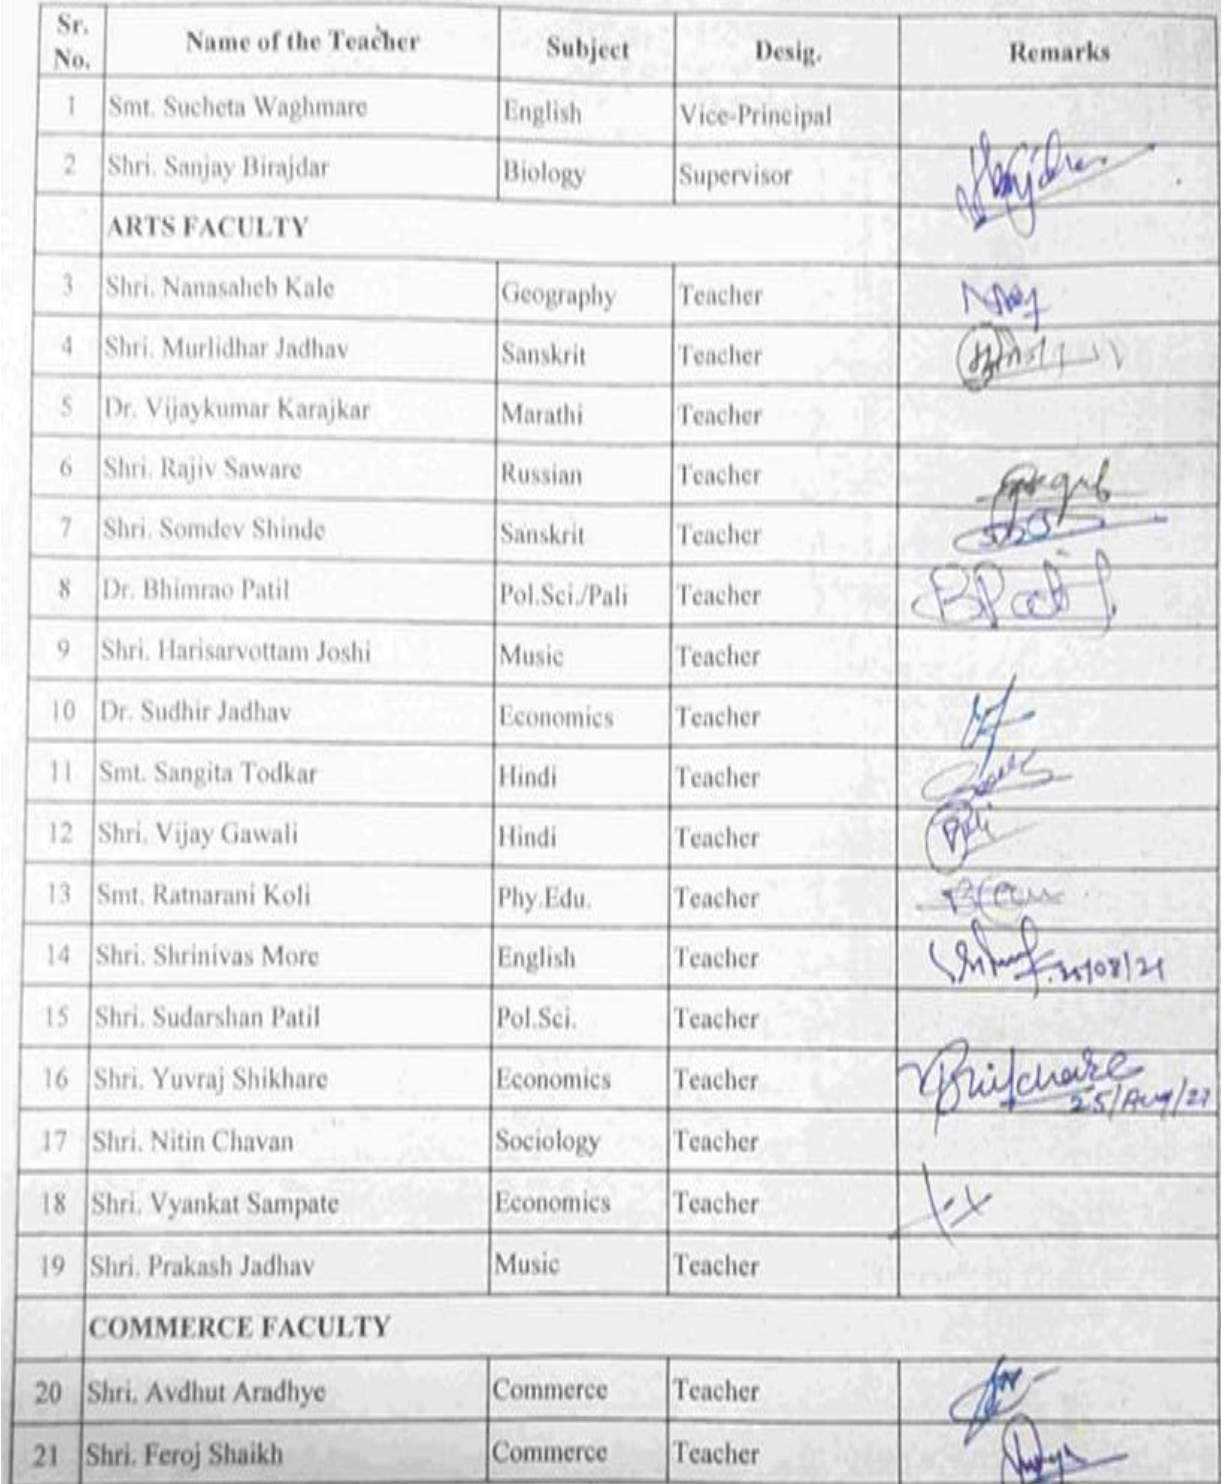 Sr. No. Name of the Teacher Subject Desig. Remarks
1 Smt. Sucheta Waghmare English Vice-Principal
2 Shri. Sanjay Birajdar Biology Supervisor
ARTS FACULTY
3 Shri. Nanasaheb Kale Geography Teacher
4 Shri. Murlidhar Jadhav Sanskrit Teacher
5 Dr. Vijaykumar Karajkar Marathi Teacher
6 Shri. Rajiv Saware Russian Teacher
7 Shri. Somdev Shinde Sanskrit Teacher
8 Dr. Bhimrao Patil Pol.Sci./Pali Teacher BPatil
9 Shri. Harisarvottam Joshi Music Teacher
10 Dr. Sudhir Jadhav Economics Teacher
11 Smt. Sangita Todkar Hindi Teacher
12 Shri. Vijay Gawali Hindi Teacher
13 Smt. Ratnarani Koli Phy.Edu. Teacher
14 Shri. Shrinivas More English Teacher
15 Shri. Sudarshan Patil Pol.Sci. Teacher
16 Shri. Yuvraj Shikhare Economics Teacher
17 Shri. Nitin Chavan Sociology Teacher
18 Shri. Vyankat Sampate Economics Teacher
19 Shri. Prakash Jadhav Music Teacher
COMMERCE FACULTY
20 Shri. Avdhut Aradhye Commerce Teacher
21 Shri. Feroj Shaikh Commerce Teacher